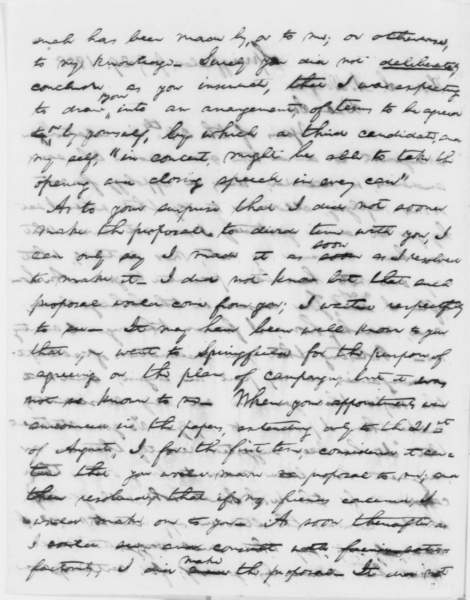 such has been made by, or to me; or otherwise,
to my knowledge. Surely you did not deliberately
conclude, as you insinuate, that I was expecting
to draw you, into an arrangement, of terms to be agreed
by yourself, by which a third candidate, and
my self, "in concert, might be able to take the
opening and closing speech in every case"
As to your surprise that I did not sooner
make the proposal to divide time with you, I
can only say I made it as soon as I resolved
to make it. I did not know but that such
proposal would come from you; I waited respectfully
to see. It may have been well known to you
that you went to Springfield for the purpose of
agreeing on the plan of campaign; but it was
not so known to me. When your appointments were
announced in the papers, extending only to the 21st
of August, I, for the first time, considered it cer-
tain that you would make no proposal to me; and
then resolved, that if my friends concurred, I
would make one to you. As soon thereafter as
I could see and consult with friends satis-
factorily, I did make the proposal. It did not